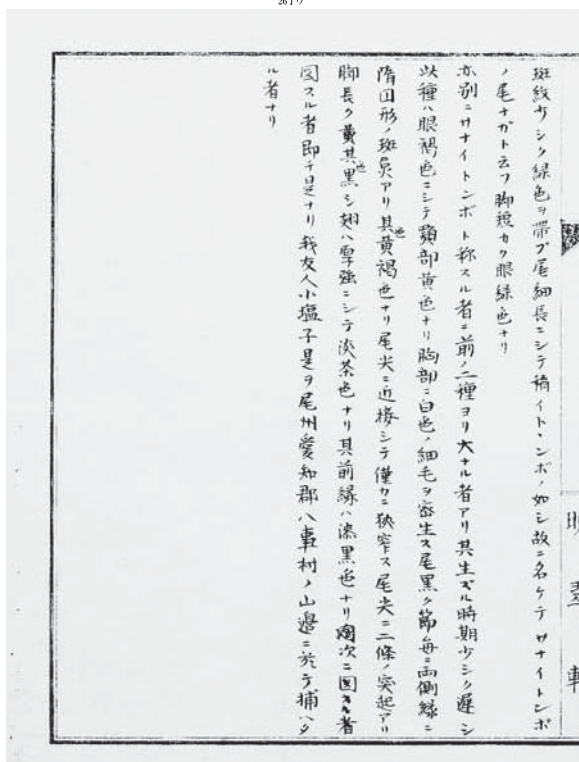 26丁ウ
斑紋少シク緑色ヲ帯ブ尾細長ニシテ稍イトヽンボノ如シ故ニ名ケテサナイトンボ
ノ尾ナガト云フ脚短カク眼緑色ナリ
亦別ニサナイトンボト称スル者ニ前ノ二種ヨリ大ナル者アリ其生ズル時期少シク遅シ
此種ハ眼褐色ニシテ顎部黄色ナリ胸部ニ白色ノ細毛ヲ密生ス尾黒ク節毎ニ両側縁ニ
隋円形ノ斑点アリ其色黄褐色ナリ尾尖ニ近接シテ僅カニ狭窄ス尾尖ニ二條ノ突起アリ
脚長ク黄其色黒シ翅ハ厚強ニシテ淡茶色ナリ其前縁ハ漆黒色ナリ次ニ図スル者
図スル者即チ是ナリ我友人小塩子是ヲ尾州愛知郡八事村ノ山邊ニ於テ捕ヘタ
ル者ナリ